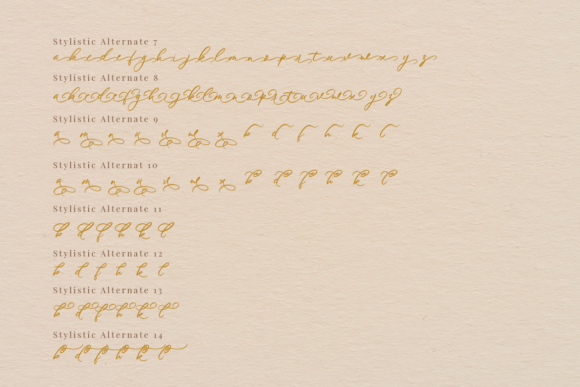 Stylistic Alternate 7
a b c d e f g h i j k l m n o p q r s t u v w x y z
Stylistic Alternate 8
a b c d e f g h i j k l m n o p q r s t u v w x y z
Stylistic Alternate 9
a m n u v x b d f h k l
Stylistic Alternat 10
a m n u v x b d f h k l
Stylistic Alternate 11
b d f h k l
Stylistic Alternate 12
b d f h k l
Stylistic Alternate 13
b d f h k l
Stylistic Alternate 14
b d f h k l